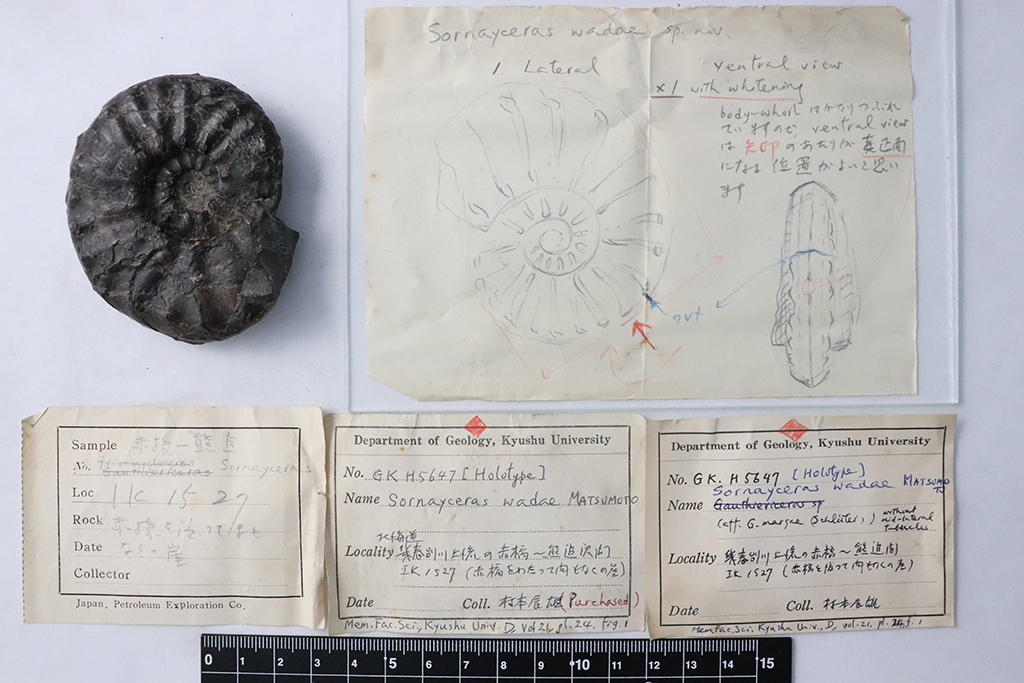 Sornayceras wadae sp. nov.
1 Lateral
ventral view
×1 with whitening
body-whorl はかなりつぶれ
ていますので、ventral view
は 矢印 のあたりが 真正面
になる 位置がよいと思い
ます
Sample 赤橋—熊追
No. Gauthiericeras Sornayceras
Loc IK 1527
Rock 赤橋を渡って
Date の崖
Collector
Japan. Petroleum Exploration Co.
Department of Geology, Kyushu University
No. GK. H5647 [Holotype]
Name Sornayceras wadae MATSUMOTO
北海道
Locality 幾春別川上流の赤橋〜熊追沢間
IK 1527 (赤橋をわたって間もなくの崖)
Date Coll.村本辰雄 (Purchased)
Mem. Fac. Sci., Kyushu Univ. D, vol 21, pl. 24, fig. 1
Department of Geology, Kyushu University
No. GK. H5647 [Holotype]
Sornayceras wadae MATSUMOTO
Name Gauthiericeras sp
(aff. G. margae Schlüter, ) without mid-lateral tubercles
Locality 幾春別川上流の赤橋〜熊追間
IK 1527 (赤橋を渡って間もなくの崖)
Date Coll.村本辰雄
Mem. Fac. Sci. Kyushu Univ., D, vol. 21, pl. 24, f. 1
0 1 2 3 4 5 6 7 8 9 10 11 12 13 14 15